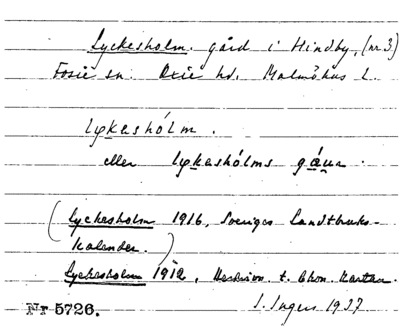 Lyckesholm. gård i Hindby, (nr 3)
Fosie sn. Oxie hd. Malmöhus l.
lykashólm.
eller lykashólms gáur.
(Lyckesholm 1916, Sveriges Landtbruks-
kalender.)
Lyckesholm 1912, t. Ekon. Kartan.
Nr 5726.
I. Ingers 1937